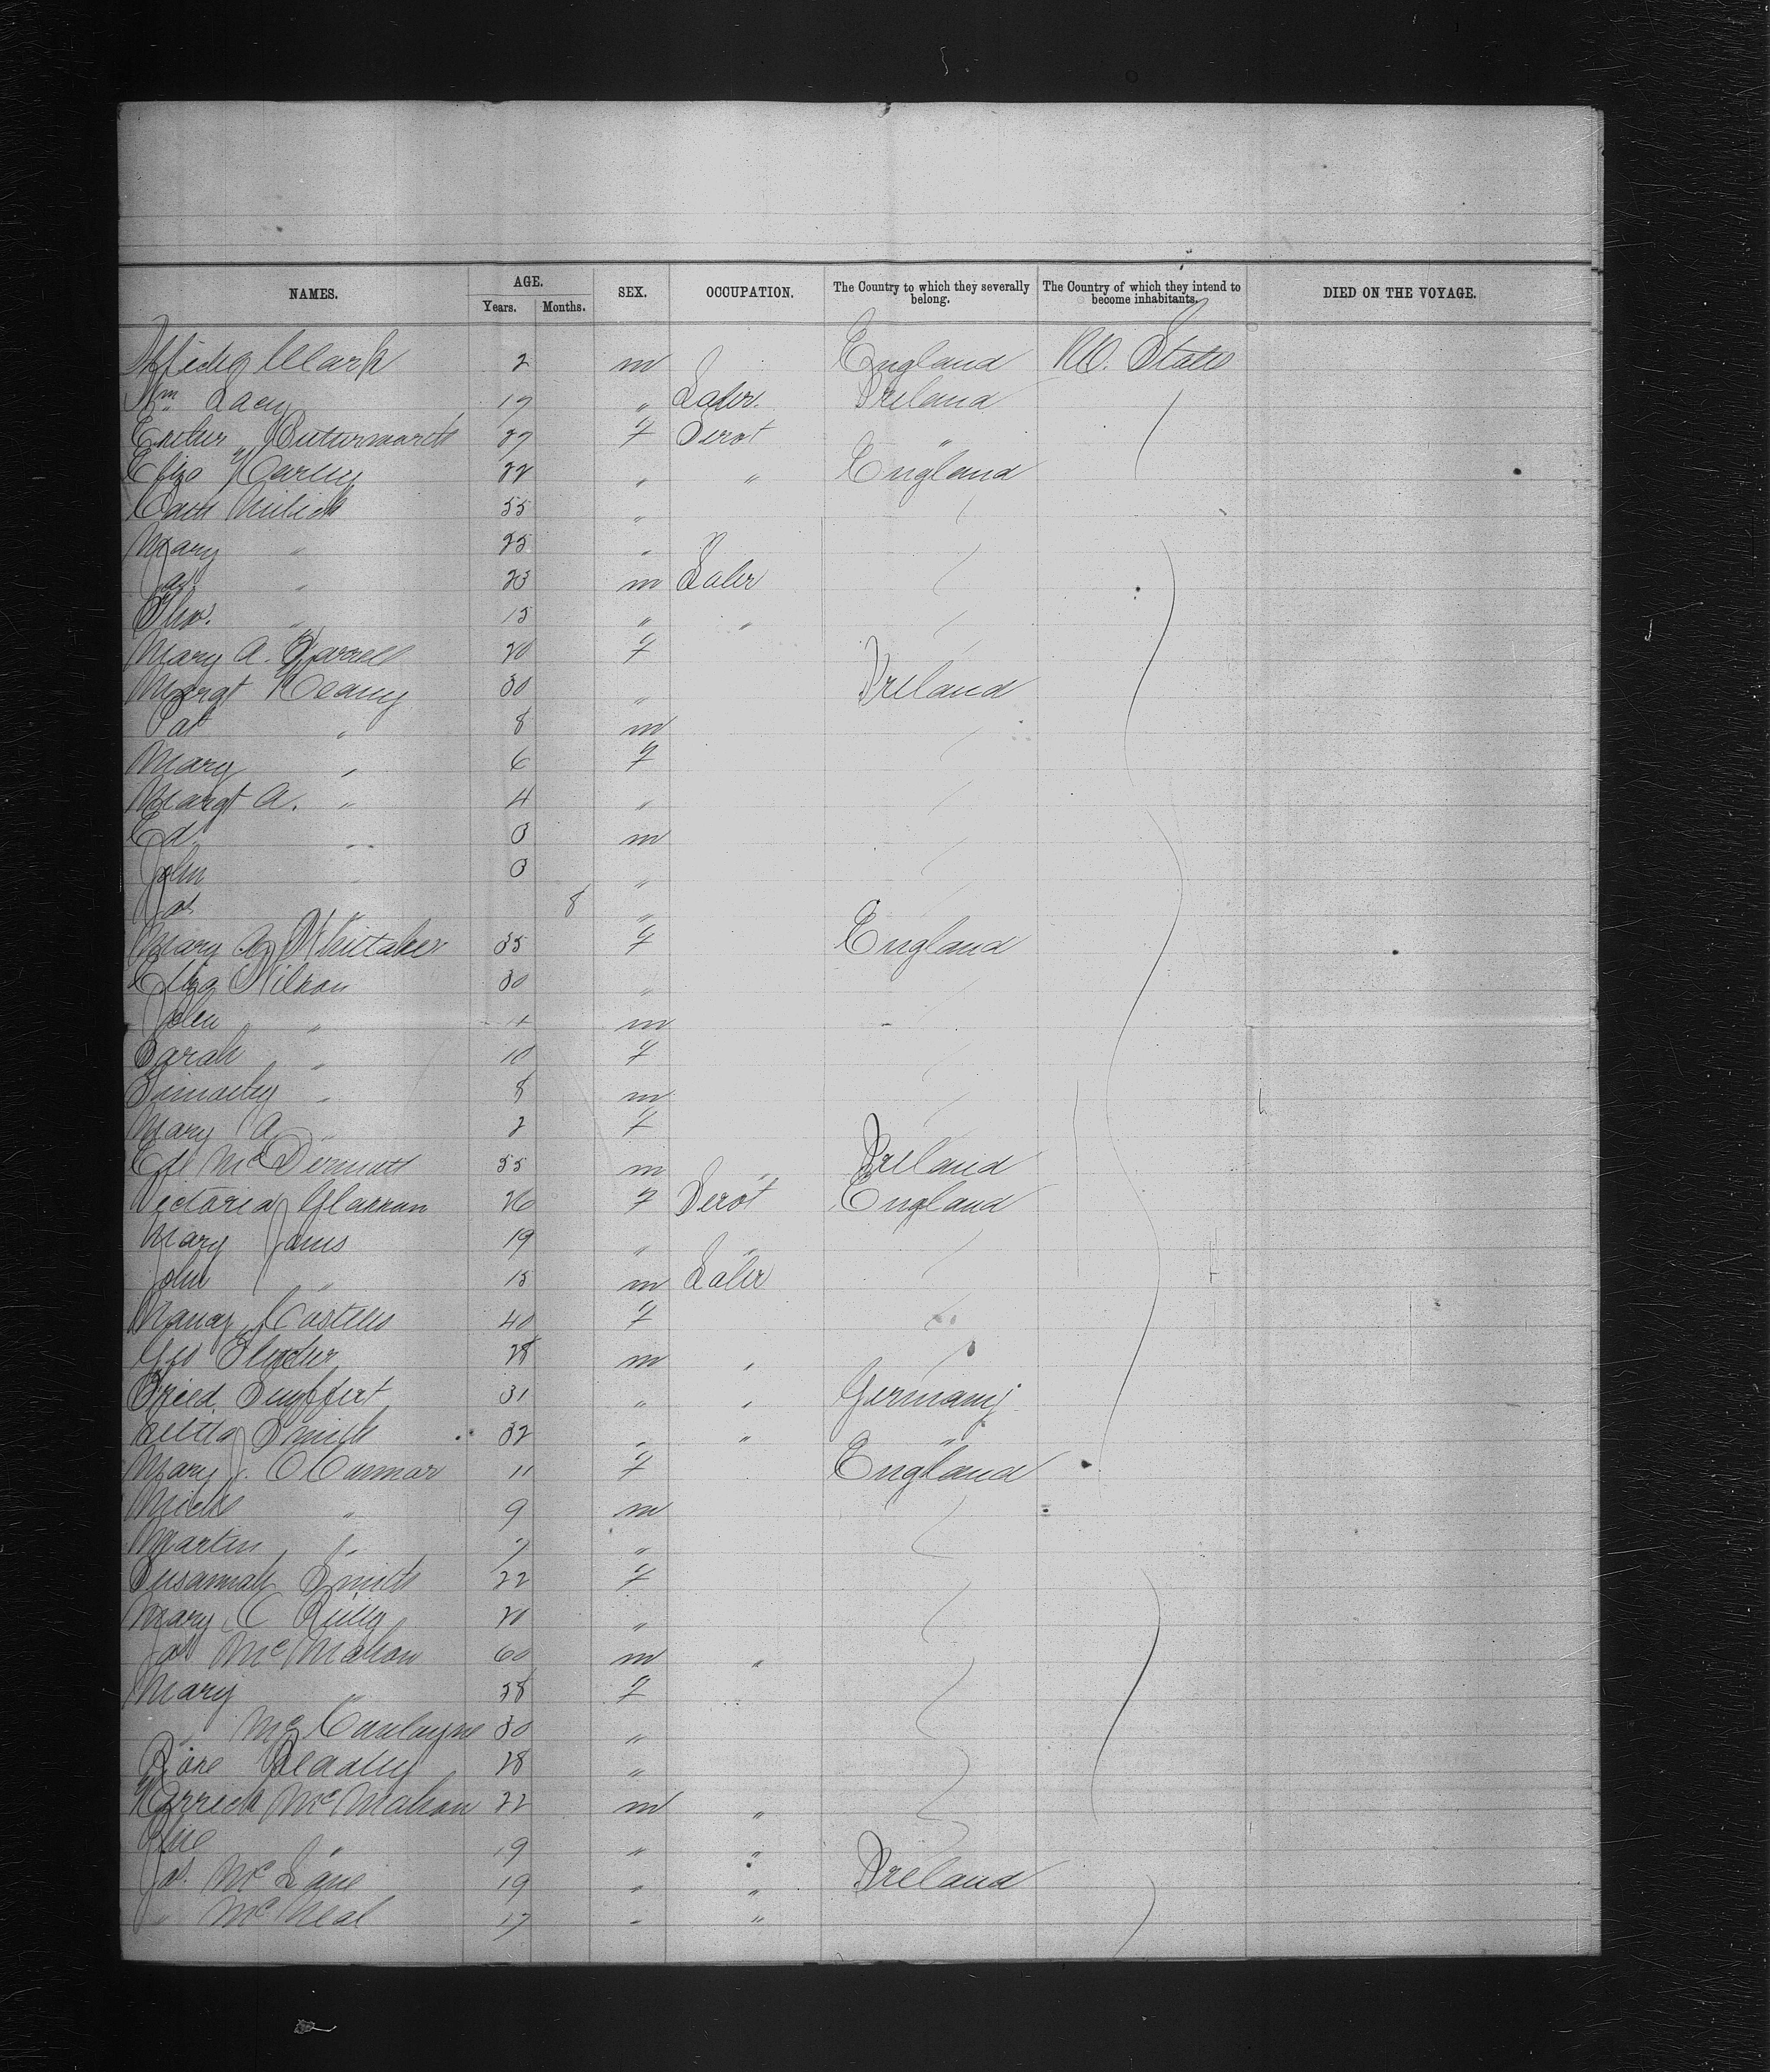 NAMES. AGE. SEX. OCCUPATION. The Country to which they severally belong. The Country of which they intend to become inhabitants. DIED ON THE VOYAGE.
Years. Months.
Clark 2 m England U. States
Wm Lacy 17 " Labr. Ireland
27 f Servt "
Eliza 22 " " England
Cath 55 "
Mary " 25 "
Jas. " 23 m Labr
Thos. " 15 " "
Mary A. Farrell 20 f
Margt Keany 30 " Ireland
Pat " 8 m
Mary " 6 f
Margt A. " 4 "
Ed. " 3 m
John " 3 "
Jas. " 8 "
Mary A Whittaker 35 f England
Eliza Wilson 30 "
John " m
Sarah " 10 f
Timothy " 8 m
Mary A " 2 f
Ed McDermott 55 m " Ireland
Victoria 26 f Servt England
Mary Janes 19 " "
John " 15 m Labr
Nancy Costello 40 f
Geo 28 m "
Fried. 31 " " Germany
Smith 32 " " "
Mary J. OConnor 11 f England
Mick " 9 m
Martin " 7 "
Susannah Smith 22 f
Mary C Reilly 20 "
Jas McMahon 60 m "
Mary " 58 f
" Mc 30 "
Rose 28 "
McMahon 22 m "
" 19 " "
Jas. McLane 19 " " Ireland
" McNeal 17 " "